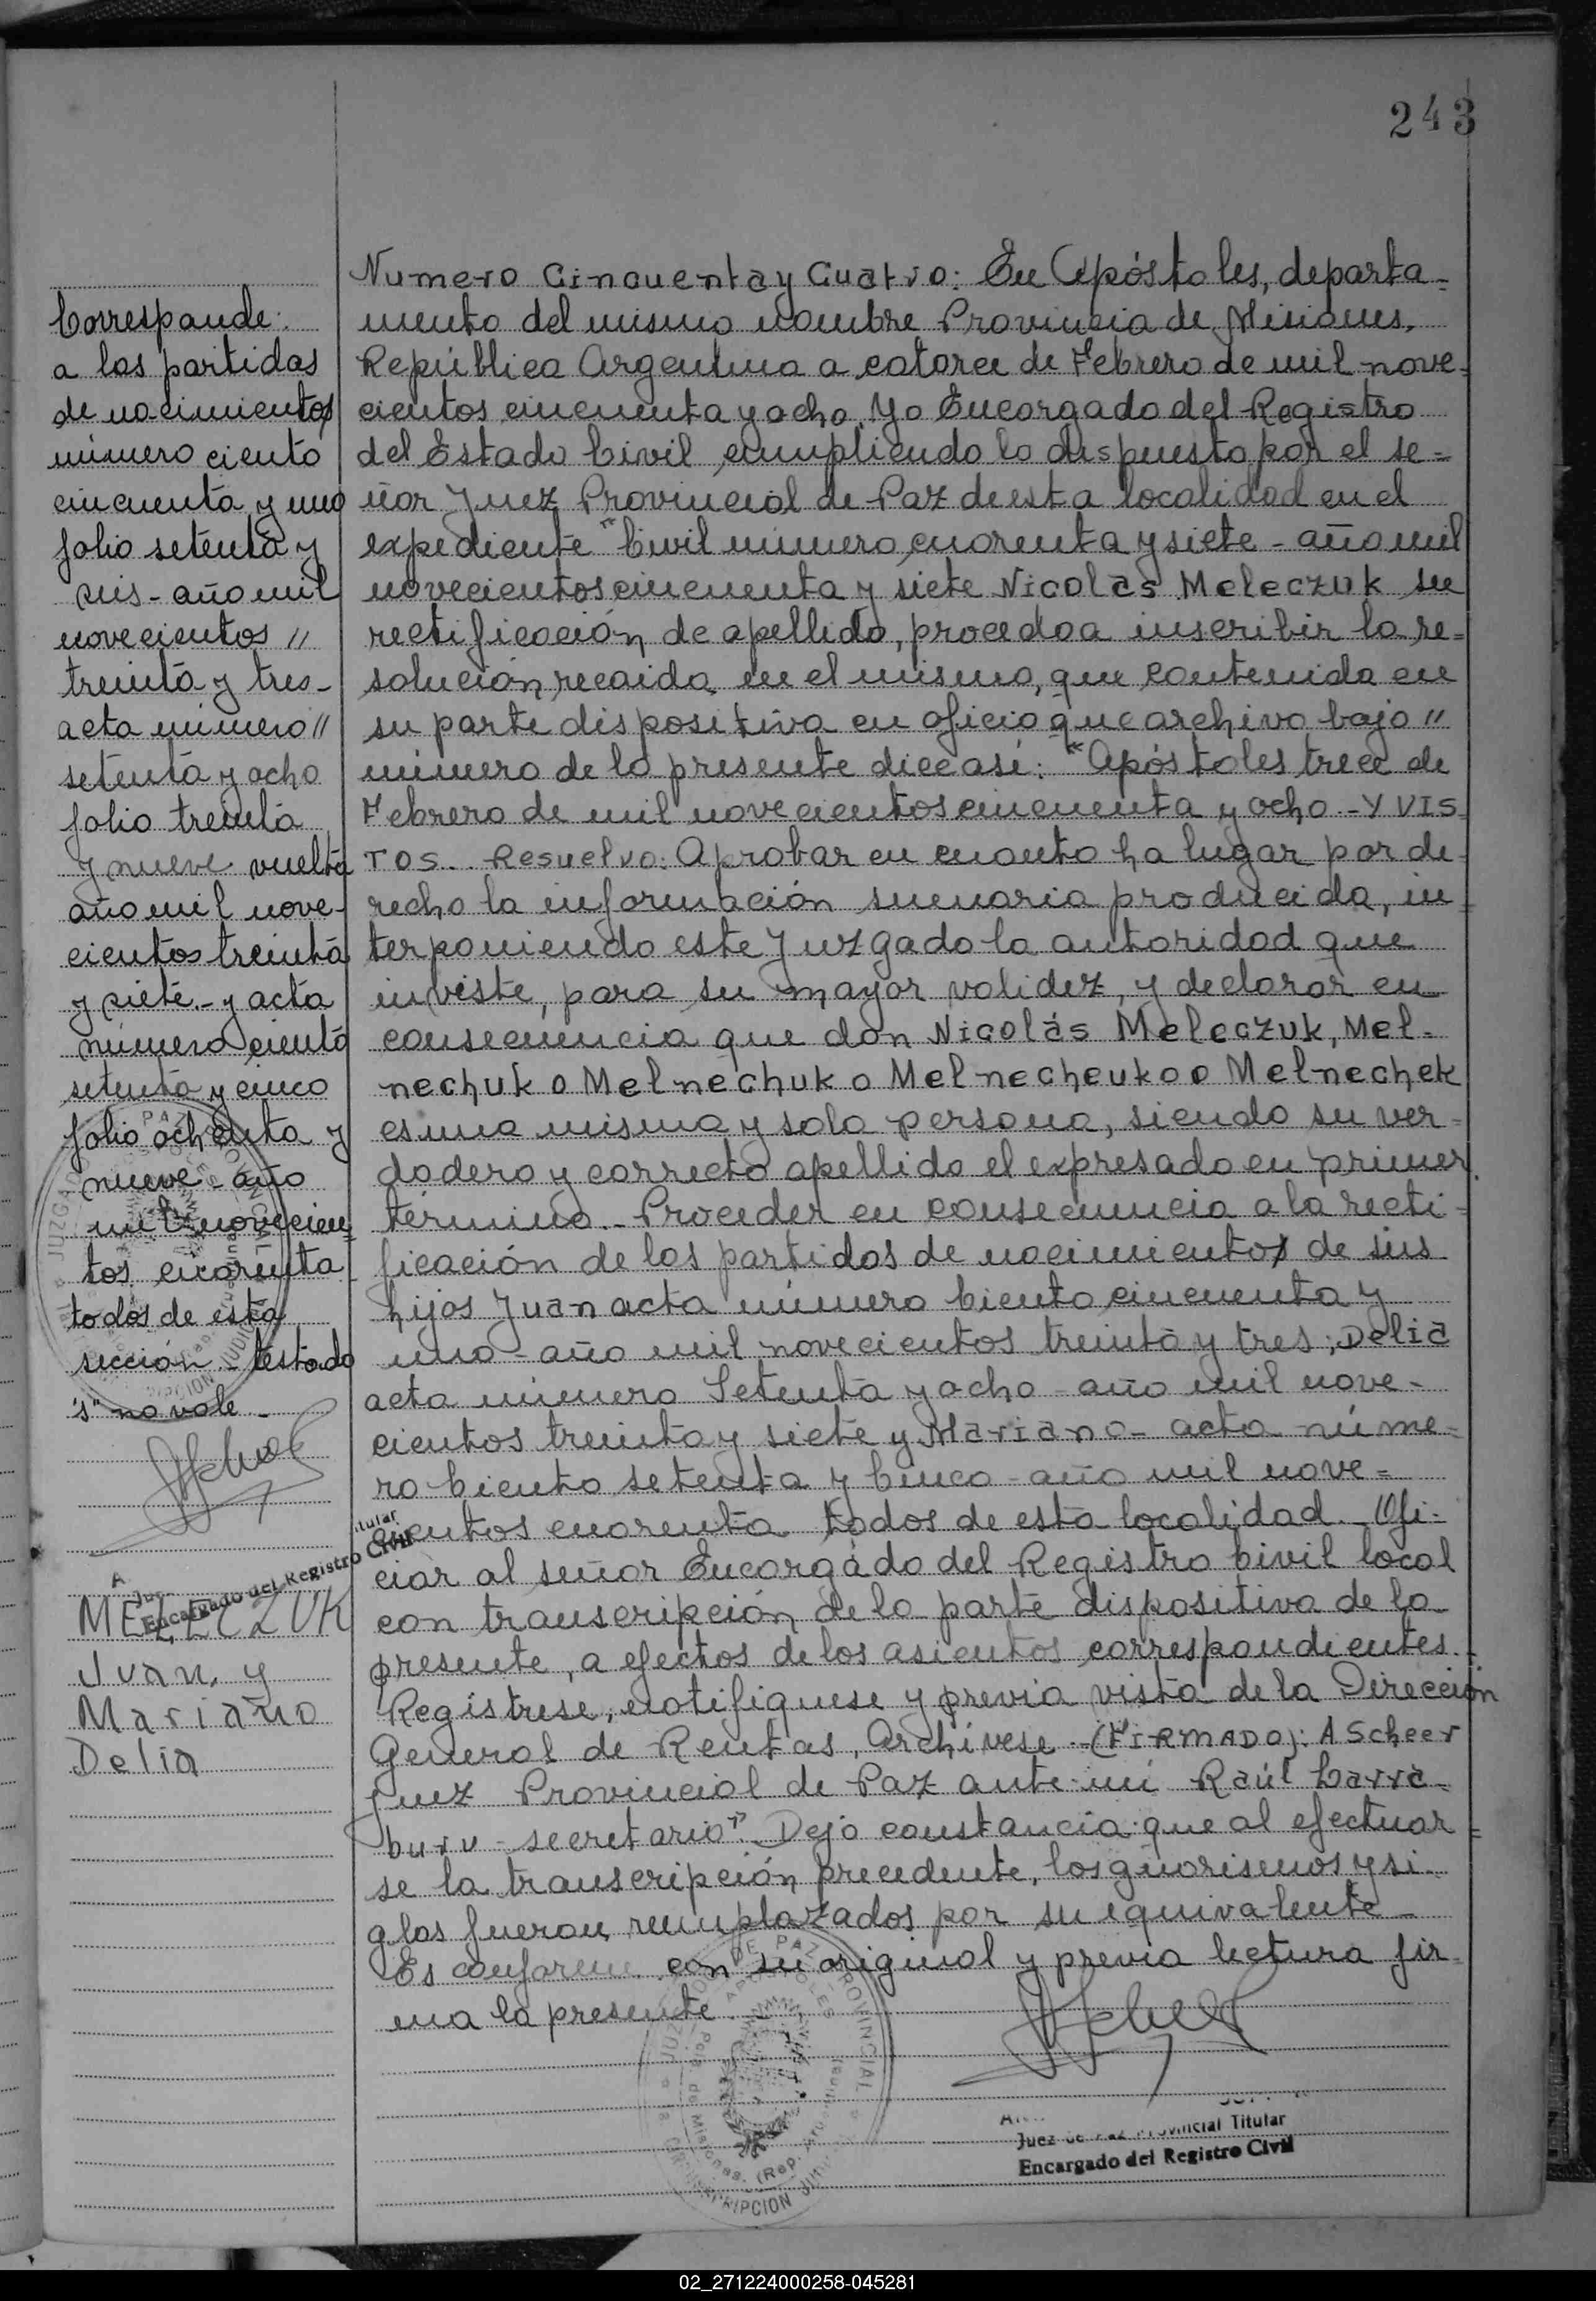 243
Corresponde:
a las partidas
de nacimientos
número ciento
cincuenta y uno
folio setenta y
seis - año mil
novecientos //
treinta y tres -
acta número //
setenta y ocho
folio treinta
y nueve vuelta
año mil nove-
cientos treinta
y siete.- y acta
número ciento
setenta y cinco
folio ochenta y
nueve - año
mil novecien-
tos cuarenta
todos de esta
sección - testado
"s" no vale -
Titular
Encargado del Registro Civil
MELECZUK
Juan, y
Mariano
Delia
Numero Cincuenta y Cuatro: En Apóstoles, departa-
mento del mismo nombre Provincia de Misiones,
República Argentina a catorce de Febrero de mil nove-
cientos cincuenta y ocho. Yo Encargado del Registro
del Estado Civil cumpliendo lo dispuesto por el se-
ñor Juez Provincial de Paz de esta localidad en el
expediente "Civil número cuarenta y siete - año mil
novecientos cincuenta y siete Nicolás Meleczuk su
rectificación de apellido, procedo a inscribir la re-
solución, recaida en el mismo, que contenida en
su parte dispositiva en oficio que archivo bajo //
número de la presente dice así: "Apóstoles trece de
Febrero de mil novecientos cincuenta y ocho.-Y VIS-
TOS.. Resuelvo: Aprobar en cuanto ha lugar por de-
recho la información sumaria producida, in-
terponiendo este Juzgado la autoridad que
inviste, para su mayor validez, y declarar en
consecuencia que don Nicolás Meleczuk, Mel-
nechuk o Melnechuk o Melnecheuk o o Melnechek
es una misma y sola persona, siendo su ver-
dadero y correcto apellido el expresado en primer
término.- Proceder en consecuencia a la recti-
ficación de las partidas de nacimientos de sus
hijos Juan acta número Ciento cincuenta y
uno - año mil novecientos treinta y tres; Delia
acta número Setenta y ocho - año mil nove-
cientos treinta y siete y Mariano - acta núme-
ro Ciento setenta y Cinco - año mil nove-
cientos cuarenta todos de esta localidad.- Ofi-
ciar al señor Encargado del Registro Civil local
con transcripción de la parte dispositiva de la
presente, a efectos de los asientos correspondientes.-
Regístrese, notifíquese y previa vista de la Dirección
General de Rentas, Archívese.-(FIRMADO): A Scheer
Juez Provincial de Paz ante mi Raúl Larra-
buru - secretario". Dejo constancia que al efectuar-
se la transcripción precedente, los guarismos y si-
glas fueron remplazados por su equivalente -
Es conforme con su original y previa lectura fir-
ma la presente
JUZGADO DE PAZ PROVINCIAL
Juez de Paz Provincial Titular
Encargado del Registro Civil
02_271224000258-045281